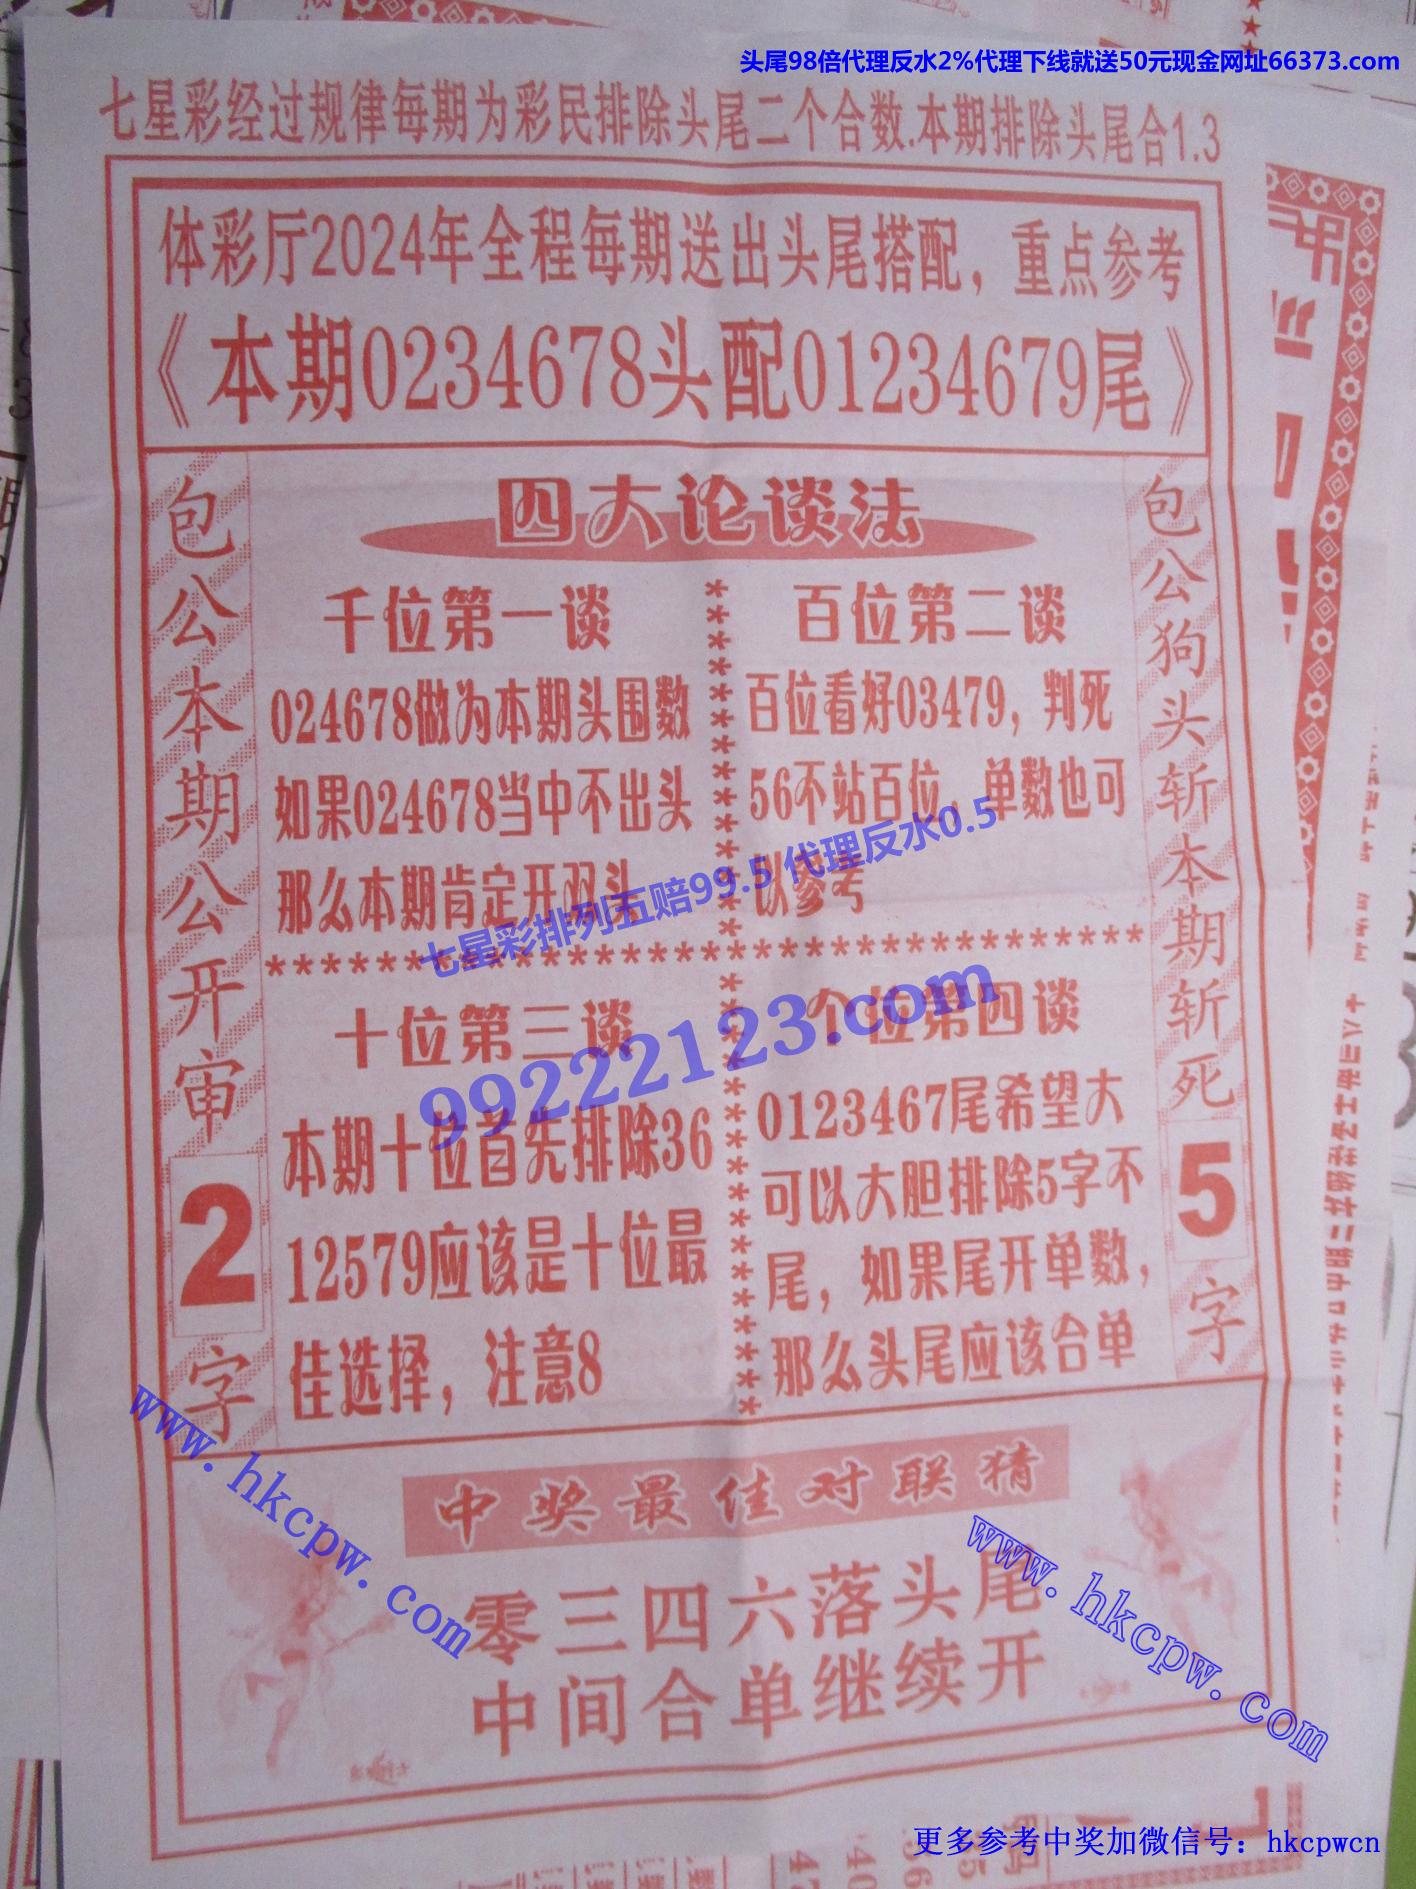 头尾98倍代理反水2%代理下线就送50元现金网址66373.com
七星彩经过规律每期为彩民排除头尾二个合数.本期排除头尾合1.3
体彩厅2024年全程每期送出头尾搭配，重点参考
《本期0234678头配01234679尾》
包公本期公开审2字
四大论谈法
千位第一谈
024678做为本期头围数
如果024678当中不出头
那么本期肯定开双头
百位第二谈
百位看好03479，判死
56不站百位，单数也可
以参考
七星彩排列五赔99.5 代理反水0.5
99222123.com
十位第三谈
本期十位首先排除36
12579应该是十位最
佳选择，注意8
个位第四谈
0123467尾希望大
可以大胆排除5字不
尾，如果尾开单数，
那么头尾应该合单
包公狗头斩本期斩死5字
中奖最佳对联猜
零三四六落头尾
中间合单继续开
www.hkcpw.com
www.hkcpw.com
更多参考中奖加微信号：hkcpwcn